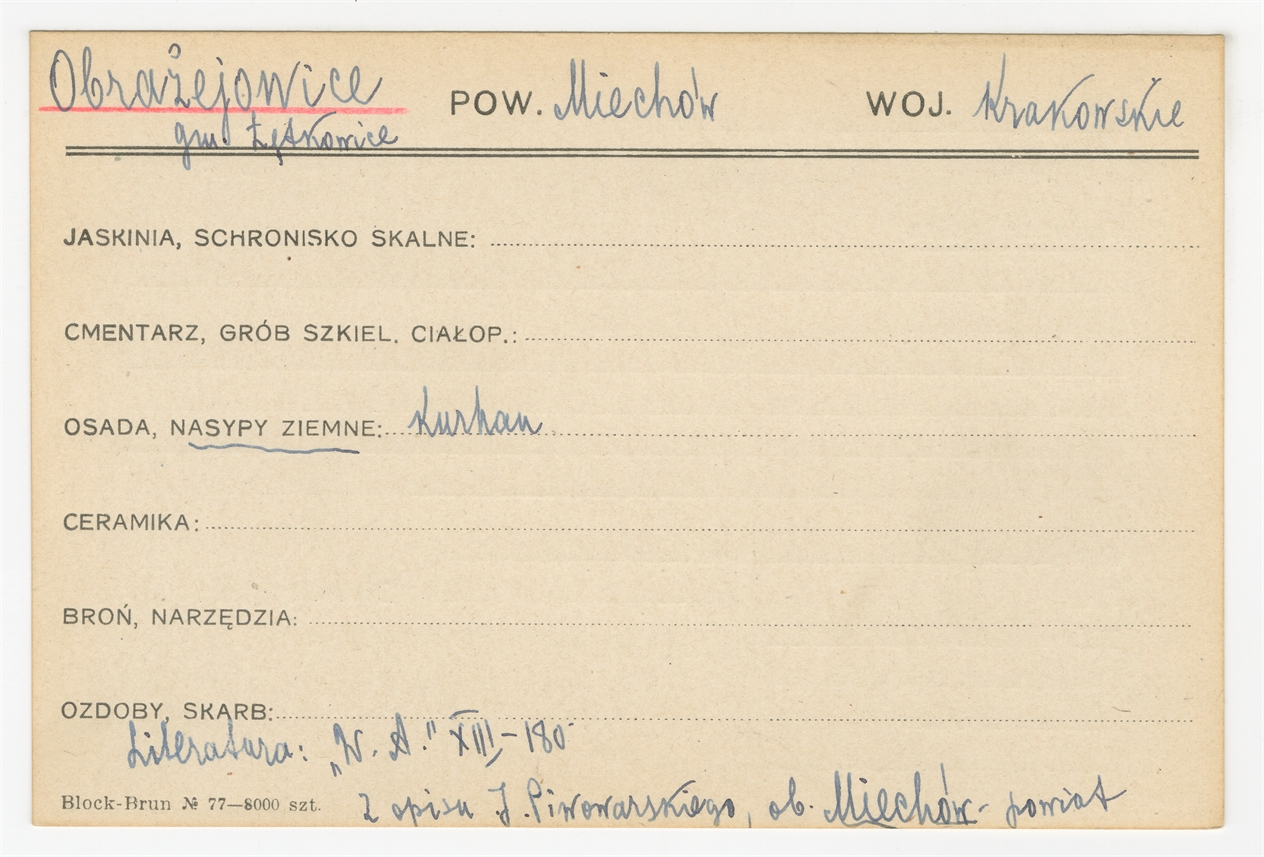 Obrażejowice POW. Miechów WOJ. Krakowskie
gm. Łętkowice
JASKINIA, SCHRONISKO SKALNE:
CMENTARZ, GRÓB SZKIEL. CIAŁOP.:
OSADA, NASYPY ZIEMNE: Kurhan
CERAMIKA:
BROŃ, NARZĘDZIA:
OZDOBY, SKARB:
Literatura: „W. A." XIII – 180
Block-Brun № 77—8000 szt. Z opisu J. Piwowarskiego, ob. Miechów - powiat